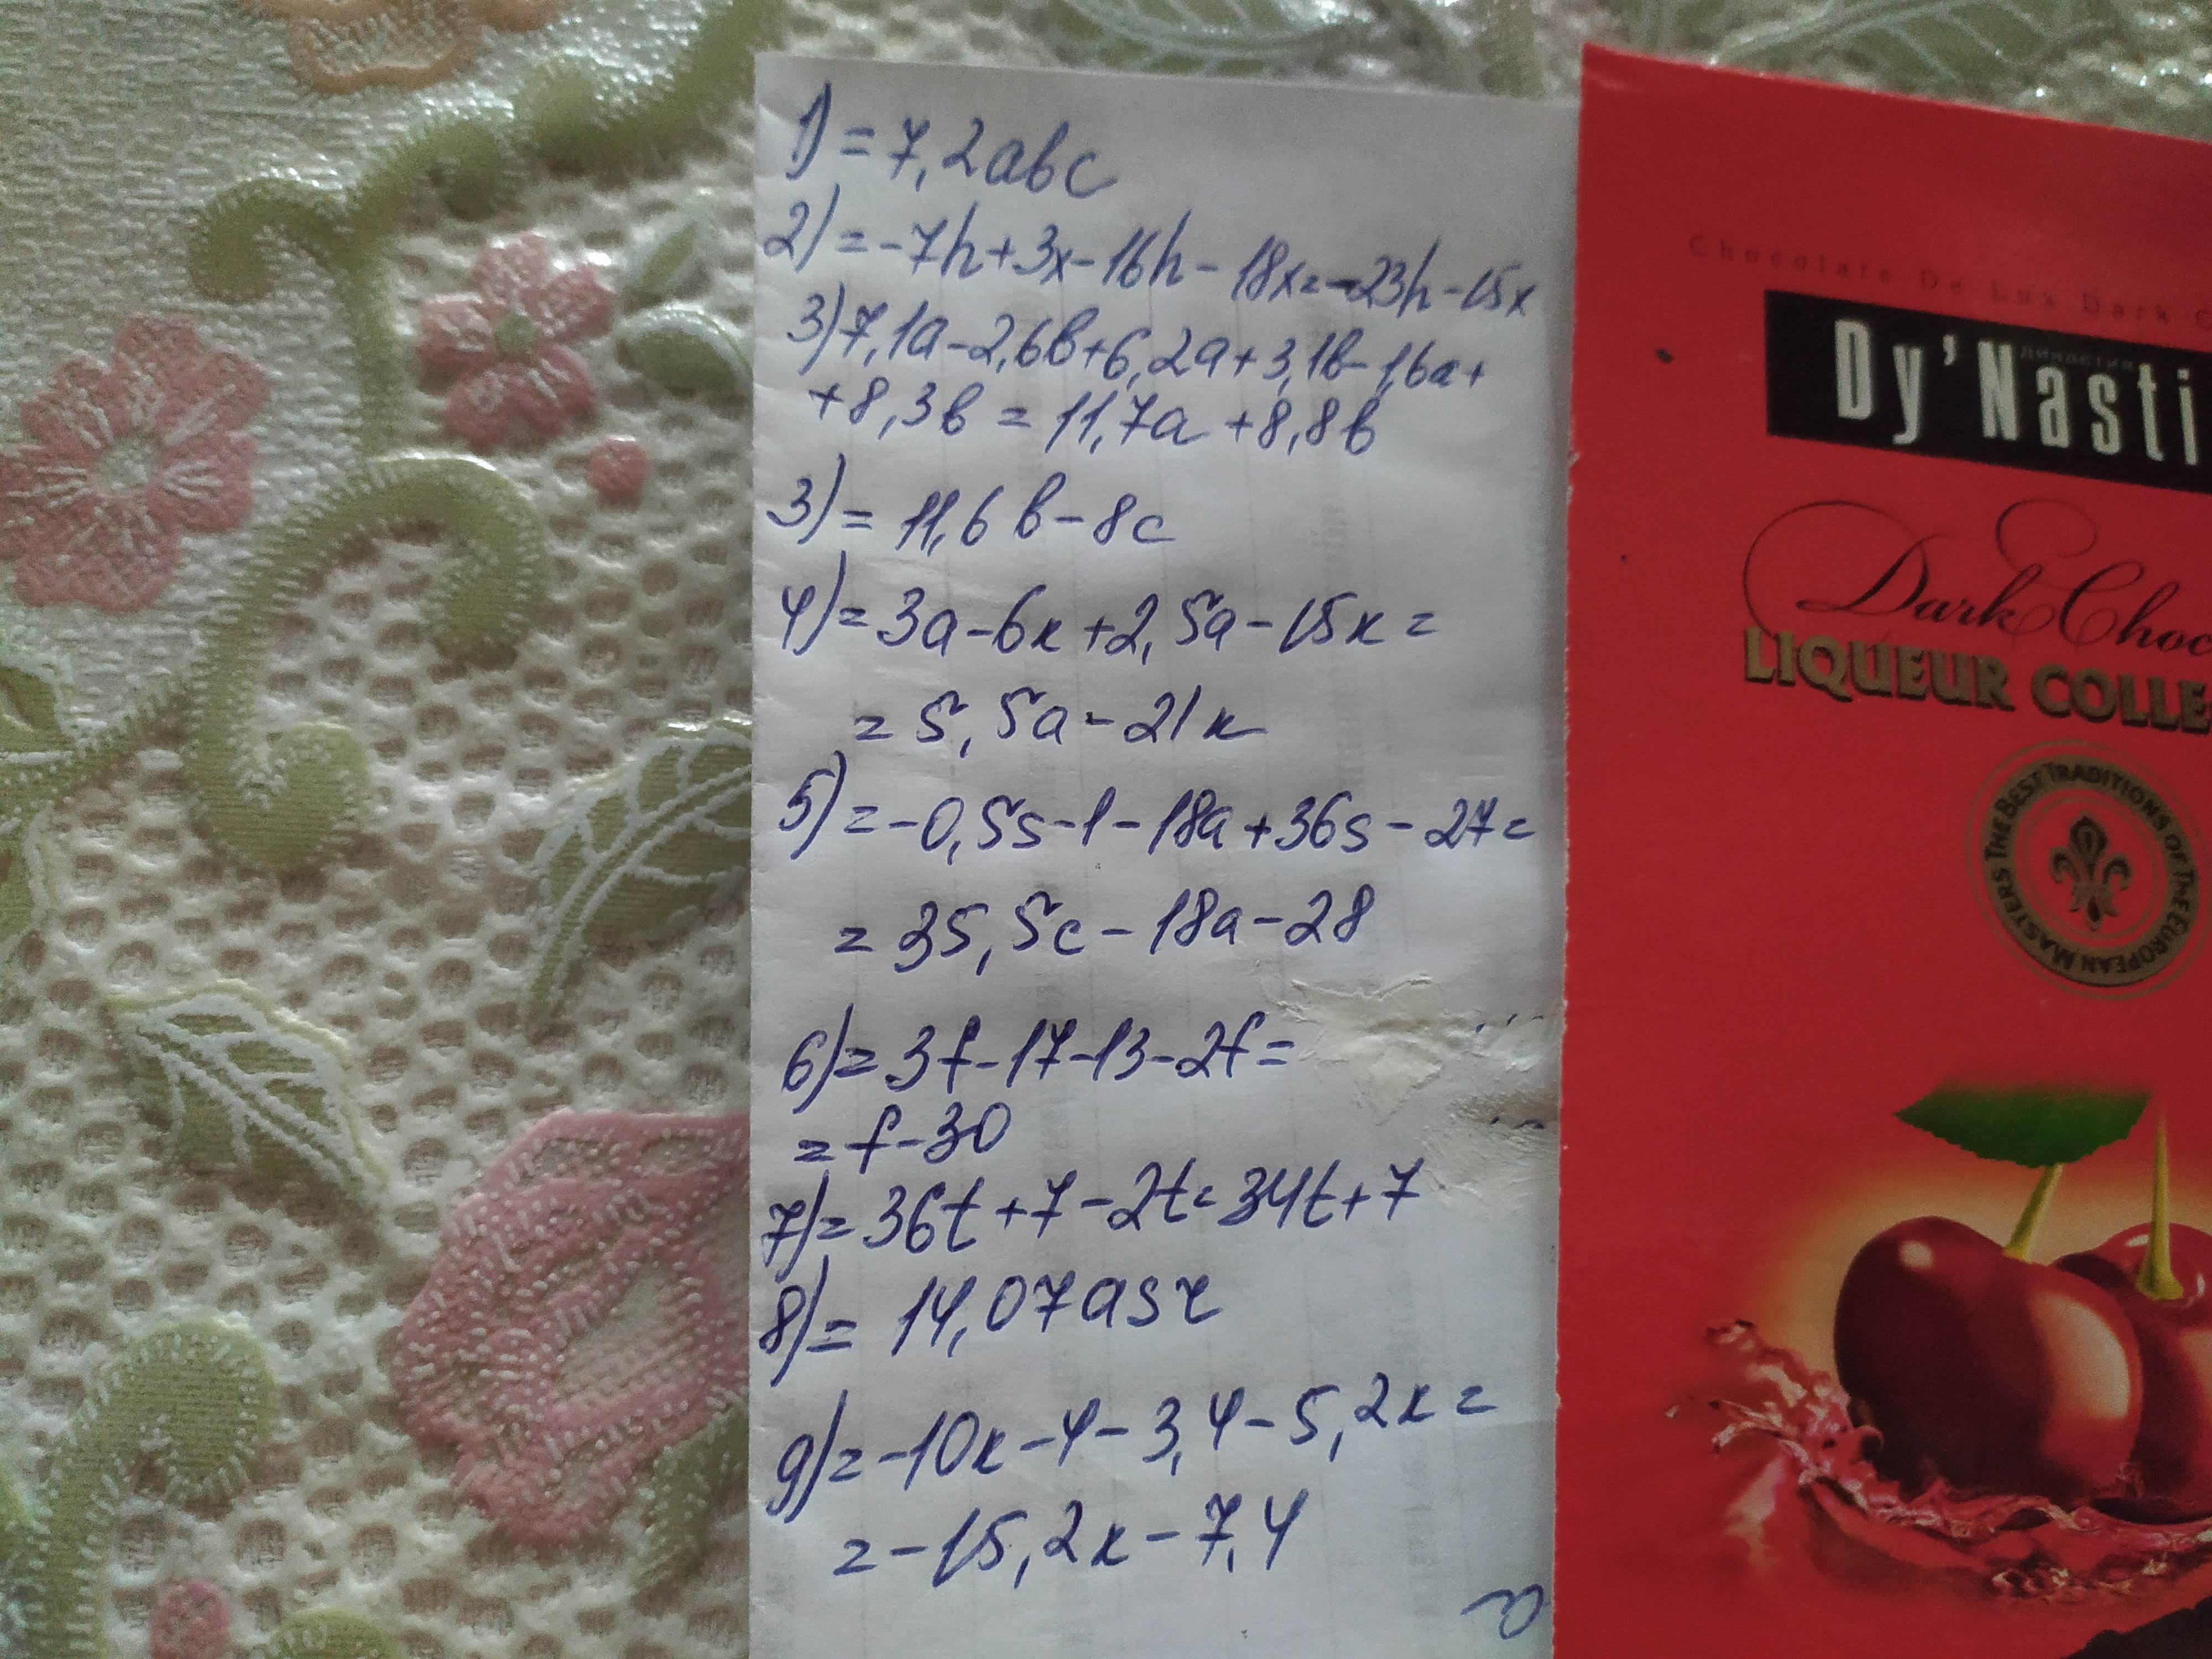 1) = 7,2abc
2) = -7h+3x-16h-18x=-23h-15x
3) 7,1a-2,6b+6,2a+3,1b-1,6a+
+8,3b = 11,7a +8,8b
3) = 11,6b-8c
4) = 3a-6x+2,5a-15x=
= 5,5a-21x
5) = -0,5s-1-18a+36s-27=
= 35,5c-18a-28
6) = 3f-17-13-2f=
= f-30
7) = 36t+7-2t=34t+7
8) = 14,07asr
9) = -10x-4-3,4-5,2x=
= -15,2x-7,4
Chocolate De Lux Dark
Dy'Nasti
Dark Choc
LIQUEUR COLLE
THE BEST TRADITIONS OF THE EUROPEAN MASTERS